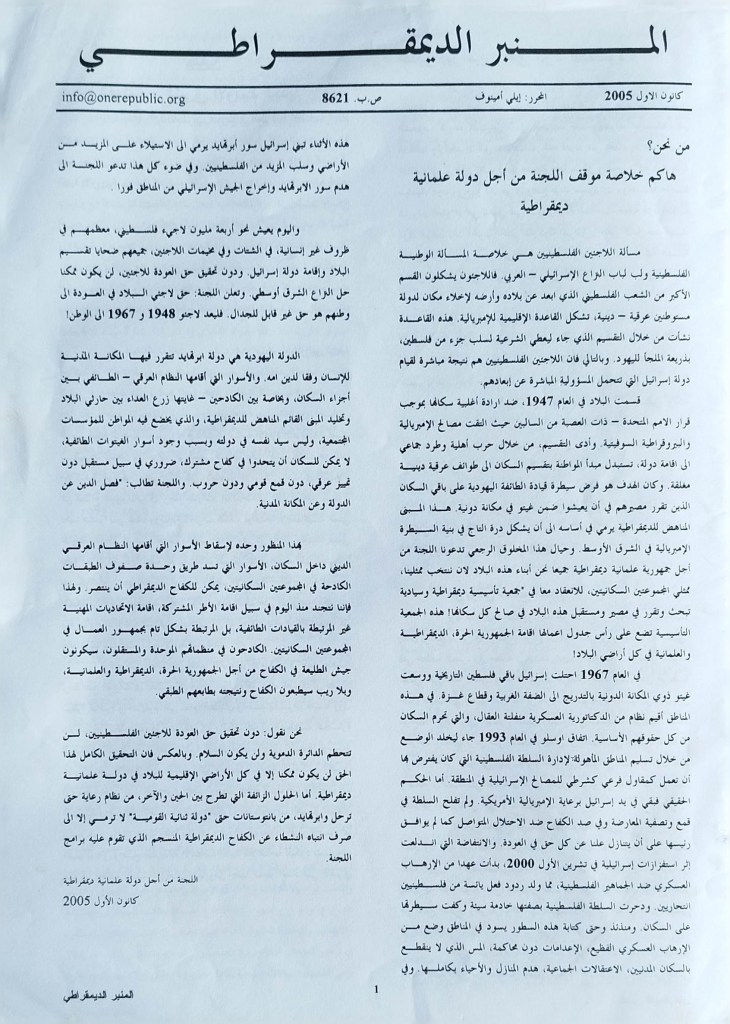 المنبر الديمقراطي
كانون الاول 2005 المحرر: إيلي أمينوف ص.ب. 8621 info@onerepublic.org
من نحن؟
هاكم خلاصة موقف اللجنة من أجل دولة علمانية
ديمقراطية
مسألة اللاجئين الفلسطينيين هي خلاصة المسألة الوطنية
الفلسطينية ولب لباب النزاع الإسرائيلي – العربي. فاللاجئون يشكلون القسم
الأكبر من الشعب الفلسطيني الذي ابعد عن بلاده وأرضه لإخلاء مكان لدولة
مستوطنين عرقية – دينية، تشكل القاعدة الإقليمية للإمبريالية. هذه القاعدة
نشأت من خلال التقسيم الذي جاء ليعطي الشرعية لسلب جزء من فلسطين،
بذريعة الملجأ لليهود. وبالتالي فان اللاجئين الفلسطينيين هم نتيجة مباشرة لقيام
دولة إسرائيل التي تتحمل المسؤولية المباشرة عن إبعادهم.
قسمت البلاد في العام 1947، ضد ارادة أغلبية سكانها بموجب
قرار الامم المتحدة – ذات العصبة من السالبين حيث التقت مصالح الإمبريالية
والبيروقراطية السوفيتية. وأدى التقسيم، من خلال حرب أهلية وطرد جماعي
الى اقامة دولة، تستبدل مبدأ المواطنة بتقسيم السكان الى طوائف عرقية دينية
مغلقة. وكان الهدف هو فرض سيطرة قيادة الطائفة اليهودية على باقي السكان
الذين تقرر مصيرهم في أن يعيشوا ضمن غيتو في مكانة دونية. هذا المبنى
المناهض للديمقراطية يرمي في أساسه الى أن يشكل درة التاج في بنية السيطرة
الإمبريالية في الشرق الأوسط. وحيال هذا المخلوق الرجعي تدعونا اللجنة من
أجل جمهورية علمانية ديمقراطية جميعا نحن أبناء هذه البلاد لان ننتخب ممثلينا،
ممثلي المجموعتين السكانيتين، للانعقاد معا في "جمعية تأسيسية ديمقراطية وسيادية
تبحث وتقرر في مصير ومستقبل هذه البلاد في صالح كل سكانها! هذه الجمعية
التأسيسية تضع على رأس جدول اعمالها اقامة الجمهورية الحرة، الديمقراطية
والعلمانية في كل أراضي البلاد!
في العام 1967 احتلت إسرائيل باقي فلسطين التاريخية ووسعت
غيتو ذوي المكانة الدونية بالتدريج الى الضفة الغربية وقطاع غزة. في هذه
المناطق أقيم نظام من الدكتاتورية العسكرية منفلتة العقال، والتي تحرم السكان
من كل حقوقهم الأساسية. اتفاق اوسلو في العام 1993 جاء ليخلد الوضع
من خلال تسليم المناطق المأهولة لإدارة السلطة الفلسطينية التي كان يفترض بها
أن تعمل كمقاول فرعي كشرطي للمصالح الإسرائيلية في المنطقة. أما الحكم
الحقيقي فبقي في يد إسرائيل برعاية الإمبريالية الأمريكية. ولم تفلح السلطة في
قمع وتصفية المعارضة وفي صد الكفاح ضد الاحتلال المتواصل كما لم يوافق
رئيسها على أن يتنازل علنا عن كل حق في العودة. والانتفاضة التي اندلعت
إثر استفزازات إسرائيلية في تشرين الأول 2000، بدأت عهدا من الإرهاب
العسكري ضد الجماهير الفلسطينية، مما ولد ردود فعل يائسة من فلسطينيين
انتحاريين. ودحرت السلطة الفلسطينية بصفتها خادمة سيئة وكفت سيطرتها
على السكان. ومنذئذ وحتى كتابة هذه السطور يسود في المناطق وضع من
الإرهاب العسكري الفظيع، الإعدامات دون محاكمة، المس الذي لا ينقطع
بالسكان المدنيين، الاعتقالات الجماعية، هدم المنازل والأحياء بكاملها. وفي
هذه الأثناء تبني إسرائيل سور أبرتهايد يرمي الى الاستيلاء على المزيد من
الأراضي وسلب المزيد من الفلسطينيين. وفي ضوء كل هذا تدعو اللجنة الى
هدم سور الابرتهايد وإخراج الجيش الإسرائيلي من المناطق فورا .
واليوم يعيش نحو أربعة مليون لاجيء فلسطيني، معظمهم في
ظروف غير إنسانية، في الشتات وفي مخيمات اللاجئين، جميعهم ضحايا تقسيم
البلاد وإقامة دولة إسرائيل. ودون تحقيق حق العودة للاجئين، لن يكون ممكنا
حل النزاع الشرق أوسطي. وتعلن اللجنة: حق لاجئي البلاد في العودة الى
وطنهم هو حق غير قابل للجدال. فليعد لاجئو 1948 و 1967 الى الوطن!
الدولة اليهودية هي دولة ابرتهايد تتقرر فيها المكانة المدنية
للإنسان وفقا لدين امه. والأسوار التي أقامها النظام العرقي – الطائفي بين
أجزاء السكان، وبخاصة بين الكادحين – غايتها زرع العداء بين حارثي البلاد
وتخليد المبنى القائم المناهض للديمقراطية، والذي يخضع فيه المواطن للمؤسسات
المجتمعية، وليس سيد نفسه في دولته وبسبب وجود أسوار الغيتوات الطائفية،
لا يمكن للسكان أن يتحدوا في كفاح مشترك، ضروري في سبيل مستقبل دون
تمييز عرقي، دون قمع قومي ودون حروب. واللجنة تطالب: "فصل الدين عن
الدولة وعن المكانة المدنية.
بهذا المنظور وحده لإسقاط الأسوار التي أقامها النظام العرقي
الديني داخل السكان، الأسوار التي تسد طريق وحدة صفوف الطبقات
الكادحة في المجموعتين السكانيتين، يمكن للكفاح الديمقراطي أن ينتصر. ولهذا
فإننا نتجند منذ اليوم في سبيل اقامة الأطر المشتركة، اقامة الاتحاديات المهنية
غير المرتبطة بالقيادات الطائفية، بل المرتبطة بشكل تام بجمهور العمال في
المجموعتين السكانيتين. الكادحون في منظماتهم الموحدة والمستقلون، سيكونون
جيش الطليعة في الكفاح من أجل الجمهورية الحرة، الديمقراطية والعلمانية،
وبلا ريب سيطبعون الكفاح ونتيجته بطابعهم الطبقي.
نحن نقول: دون تحقيق حق العودة للاجئين الفلسطينيين، لن
تتحطم الدائرة الدموية ولن يكون السلام. وبالعكس فان التحقيق الكامل لهذا
الحق لن يكون ممكنا إلا في كل الأراضي الإقليمية للبلاد في دولة علمانية
ديمقراطية. أما الحلول الزائفة التي تطرح بين الحين والآخر، من نظام رعاية حتى
ترحل وابرتهايد، من بانتوستانات حتى "دولة ثنائية القومية" لا ترمي إلا الى
صرف انتباه النشطاء عن الكفاح الديمقراطية المنسجم الذي تقوم عليه برامج
اللجنة.
اللجنة من أجل دولة علمانية ديمقراطية
كانون الأول 2005
1
المنبر الديمقراطي